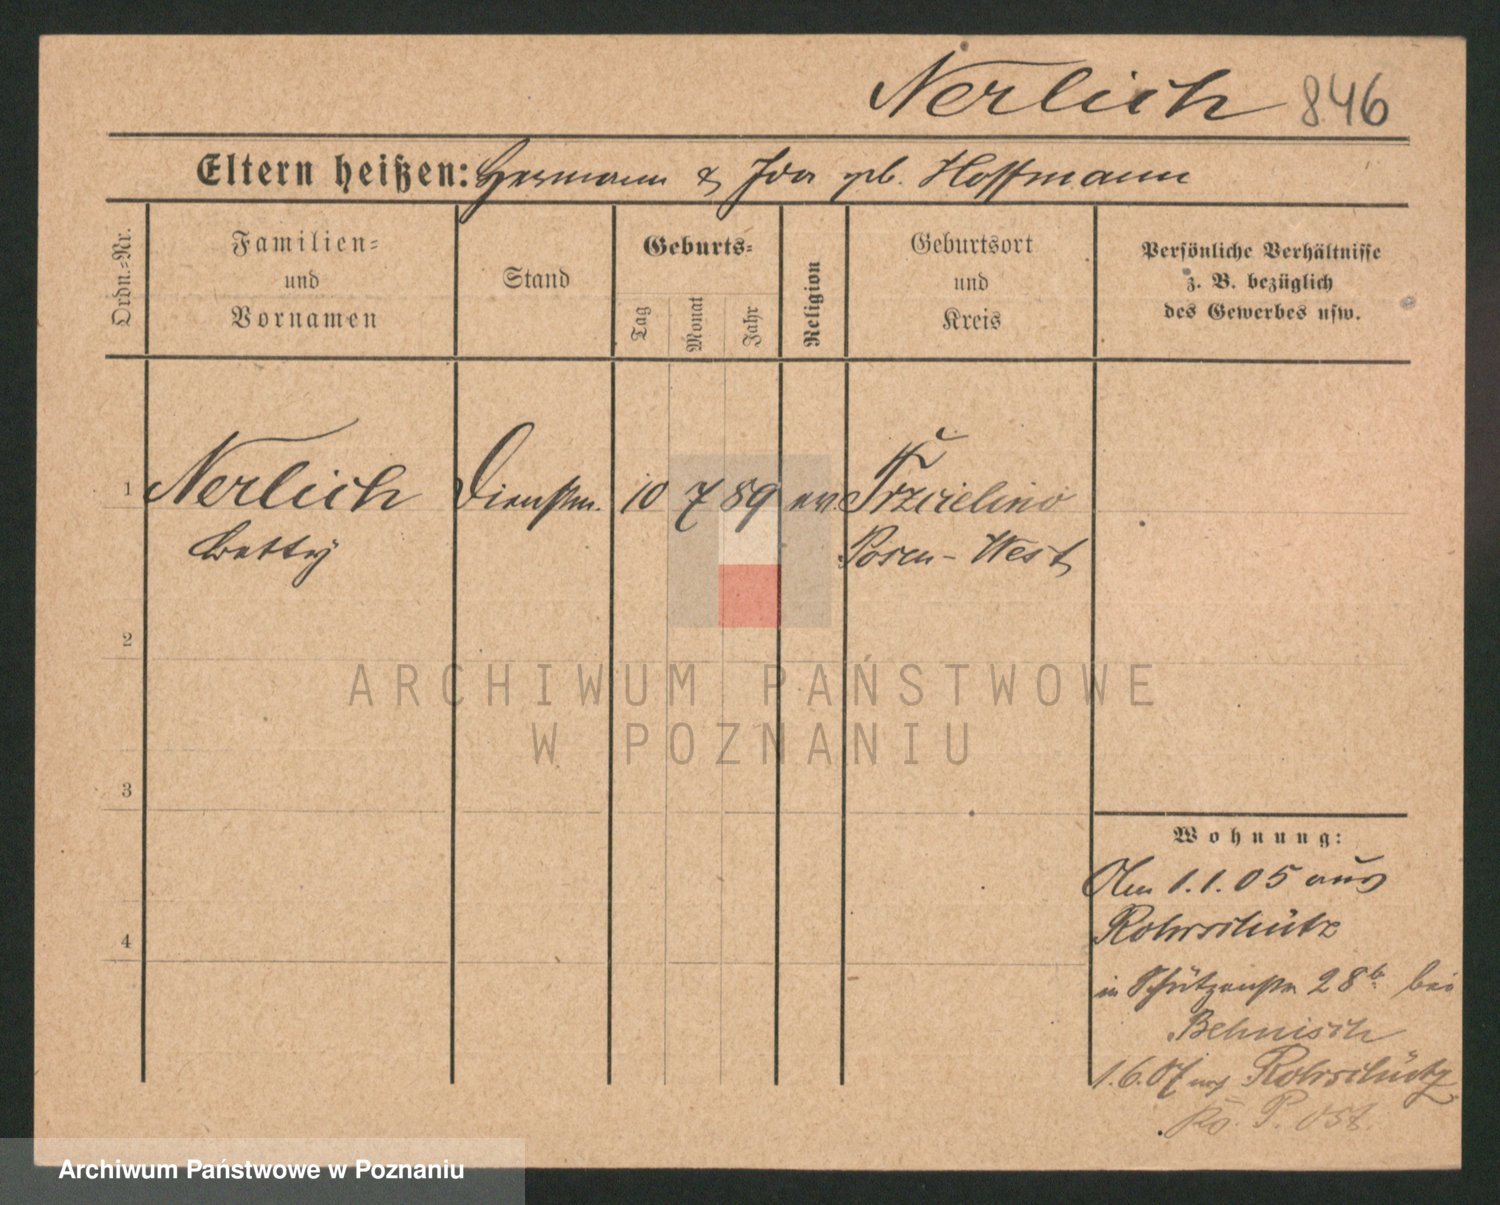 Nerlich 846
Eltern heißen: Hermann & Ida geb. Hoffmann
Ordn.-Nr.
Familien-
und
Vornamen
Stand
Geburts-
Tag
Monat
Jahr
Religion
Geburtsort
und
Kreis
Persönliche Verhältnisse
z. B. bezüglich
des Gewerbes usw.
1 Nerlich Dienstm. 10 7 89 ev. Trzcielino
Betty Posen-West
2
ARCHIWUM PAŃSTWOWE
W POZNANIU
3
Wohnung:
Am 1.1.05 aus
Rohrschütz
4
in Schützenstr 28b. bei
Behnisch
1.6.07 Rohrschütz
P. Ost.
Archiwum Państwowe w Poznaniu